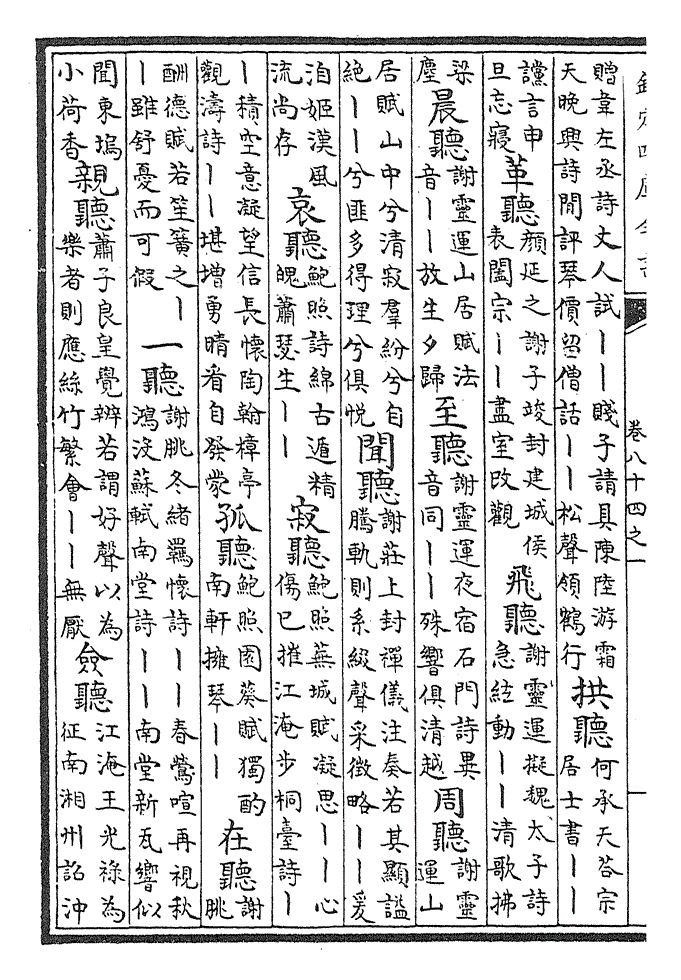 欽定四庫全書
卷八十四之一
贈韋左丞詩丈人試丨丨賤子請具陳陸游霜天晚興詩閒評琴價留僧話丨丨松聲領鶴行拱聽何承天荅宗居士書丨丨
讜言申旦忘寢革聽顔延之謝子竣封建城侯表闔宗丨丨盡室改觀飛聽謝靈運擬魏太子詩急絃動丨丨清歌拂
梁塵晨聽謝靈運山居賦法音丨丨放生夕歸至聽謝靈運夜宿石門詩異音同丨丨殊響俱清越周聽謝靈運山
居賦山中兮清寂羣紛兮自絶丨丨兮匪多得理兮俱悅聞聽謝莊上封禪儀注奏若其顯謚騰軌則系綴聲采徵略丨丨爰
洎姬漢風流尚存哀聽鮑照詩綿古遁精魄蕭瑟生丨丨寂聽鮑照蕪城賦凝思丨丨心傷巳摧江淹步桐臺詩丨
丨積空意凝望信長懷陶翰樟亭觀濤詩丨丨堪增勇晴看自發蒙孤聽鮑照園葵賦獨酌南軒擁琴丨丨在聽謝朓
酬德賦若笙簧之丨丨雖舒憂而可假一聽謝朓冬緒羈懷詩丨丨春鶯喧再視秋鴻没蘇軾南堂詩丨丨南堂新瓦響似
聞東塢小荷香親聽蕭子良皇覺辨若謂好聲以為樂者則應絲竹繁會丨丨無厭僉聽江淹王光祿為征南湘州詔沖